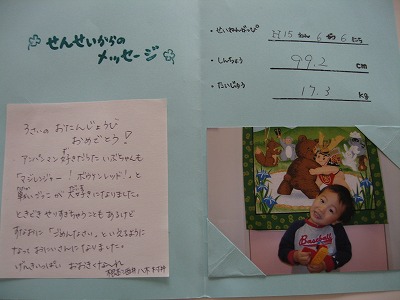 せんせいからの
メッセージ
3さいの おたんじょうび
おめでとう!
アンパンマン好きだった いぶちゃんも
「マジレンジャー!ボウケンレッド!」と
戦いごっこが大好きになりました。
ときどき やりすぎちゃうことも あるけど
すなおに「ごめんなさい」といえるように
なって おにいさんに なりました。
げんきいっぱい おおきくなぁれ
・せいねんがっぴ H15ねん 6がつ 6にち
・しんちょう 99.2 cm
・たいじゅう 17.3 kg
Baseball